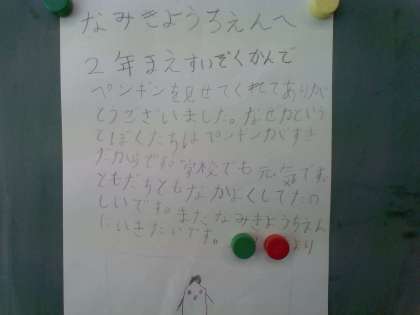 なみきようちえんへ
2年まえすいぞくかんで
ペンギンを見せてくれてありが
とうございました。なぜかという
とぼくたちはペンギンがすき
だからです。学校でも元気です。
ともだちともなかよくしてたの
しいです。またなみきようちえん
にいきたいです。
より